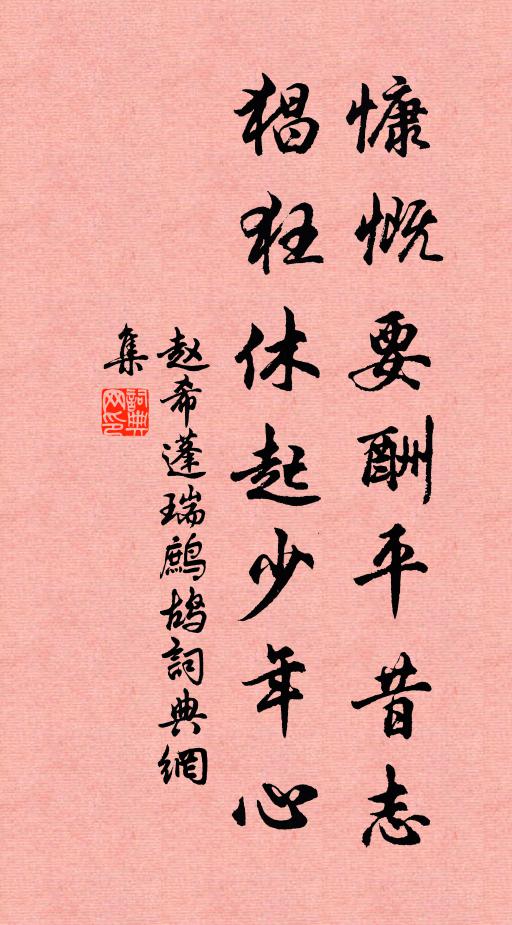 慷慨要酬平昔志
猖狂休起少年心
赵希蓬瑞鹧鸪詞典網
集
詞典
网印